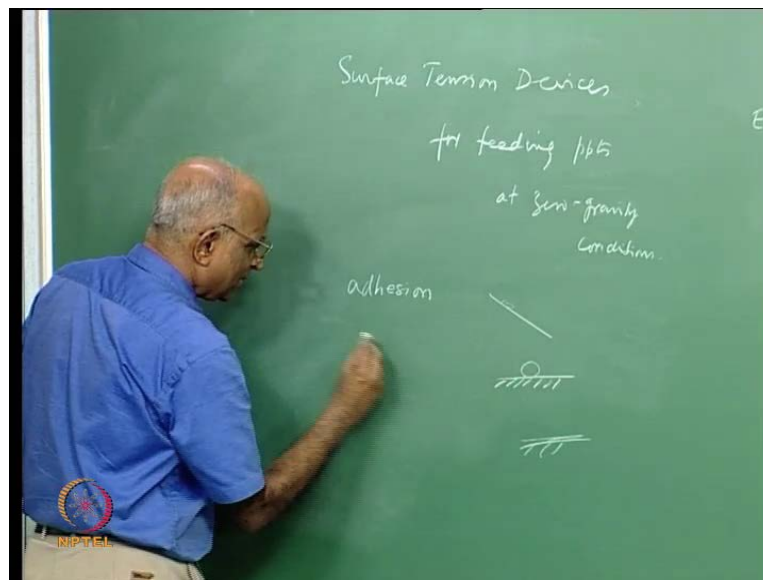 Surface Tension Devices
for feeding ppts
at zero-gravity
condition.
E
adhesion
NPTEL